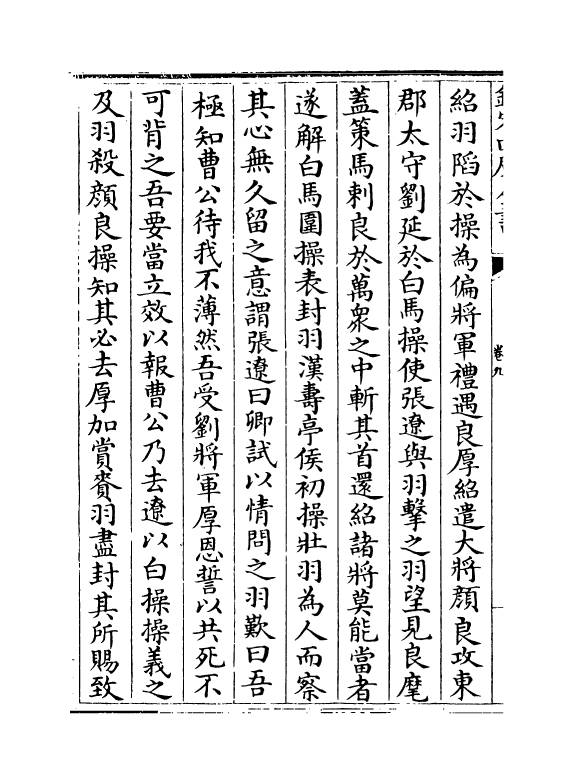 卷九
紹羽陷於操為偏將軍禮遇良厚紹遣大將顔良攻東
郡太守劉延於白馬操使張遼與羽擊之羽望見良麾
蓋策馬刺良於萬衆之中斬其首還紹諸將莫能當者
遂解白馬圍操表封羽漢壽亭侯初操壯羽為人而察
其心無久留之意謂張遼曰卿試以情問之羽歎曰吾
極知曹公待我不薄然吾受劉將軍厚恩誓以共死不
可背之吾要當立效以報曹公乃去遼以白操操義之
及羽殺顔良操知其必去厚加賞賚羽盡封其所賜致